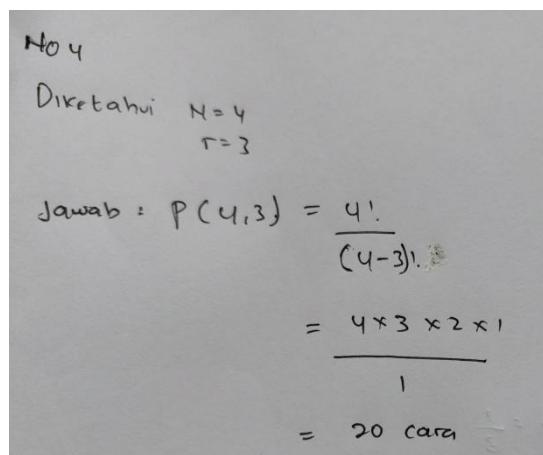 No 4
Diketahui N = 4
r = 3
Jawab : P(4,3) = 4!
(4-3)!
= 4 × 3 × 2 × 1
1
= 20 cara